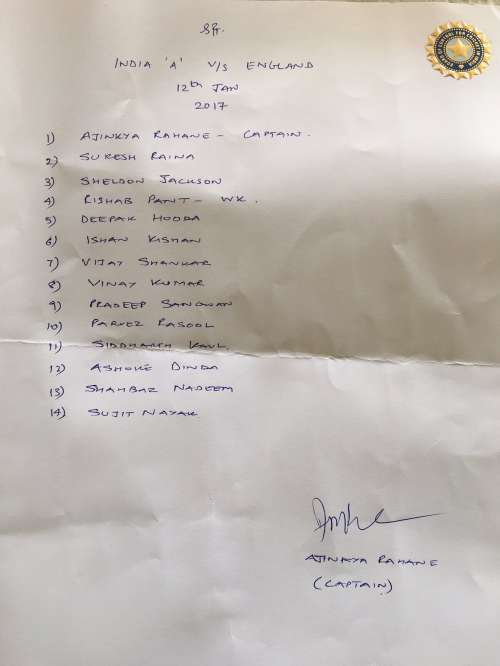 INDIA 'A' V/S ENGLAND
12th JAN
2017
1) AJINKYA RAHANE - CAPTAIN.
2) SURESH RAINA
3) SHELDON JACKSON
4) RISHAB PANT - WK.
5) DEEPAK HOODA
6) ISHAN KISHAN
7) VIJAY SHANKAR
8) VINAY KUMAR
9) PRADEEP SANGWAN
10) PARVEZ RASOOL
11) SIDDHARTH KAUL.
12) ASHOKE DINDA
13) SHAHBAZ NADEEM
14) SUJIT NAYAK
AJINKYA RAHANE
(CAPTAIN)